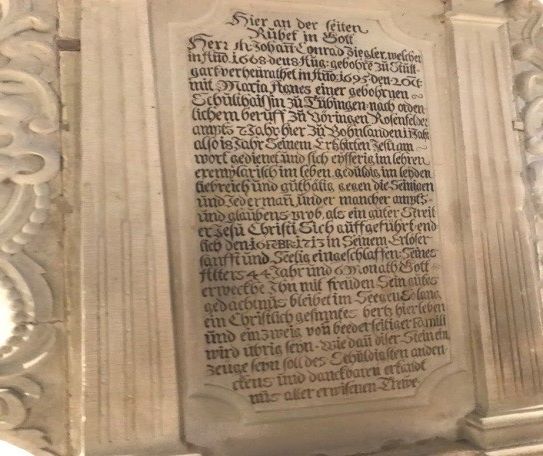 Hier an der seiten
Rühet in Gott
Herr M. Johañ Conrad Ziegler, welcher
in Año 1668 den 8 Aug: gebohrē zu Stütt-
gart verheürathet in Año 1695 den 2 Oct:
mit Maria Agnes einer gebohrnen
Schültheissin zu Tübingen nach orden
lichem berüff zu Vöringen Rosenfelder
ampts 7 Jahr hier zu Bohnlanden 11 Jahr
also 18 Jahr Seinem Ertzhirten Jesu am
wort gedienet und sich eyfferig im lehren
exemplarisch im leben gedüldig im leyden
liebreich und güthätig gegen die Seinigen
und Jedermañ, under mancher ampts-
und glaubens prob, als ein güter Streit
er Jesü Christi Sich auffgeführt end
lich den 1713 in Seinem Erlöser
sanfft und Seelig eingeschlaffen Seines
Alters 44 Jahr und 6 Monath Gott
erweckhe Ihn mit freüden Sein gütes
gedachtnüs bleibet im Seegen So lang
ein Christlich gesinntes hertz hier leben
und ein zweig von beederseitiger Famili
wird übrig seyn. Wie dañ diser Stein ein
zeüge seyn soll des Schüldigsten anden-
ckens und danckbaren
nüs aller erwisenen Trewe.